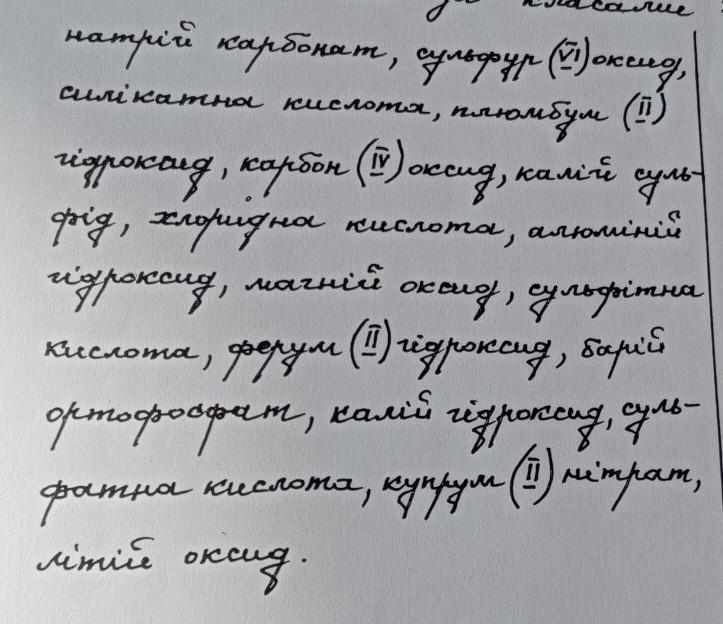 за класами
натрій карбонат, сульфур (VI) оксид,
силікатна кислота, плюмбум (II)
гідроксид, карбон (IV) оксид, калій суль-
фід, хлоридна кислота, алюміній
гідроксид, магній оксид, сульфітна
кислота, ферум (II) гідроксид, барій
ортофосфат, калій гідроксид, суль-
фатна кислота, купрум (II) нітрат,
літій оксид.